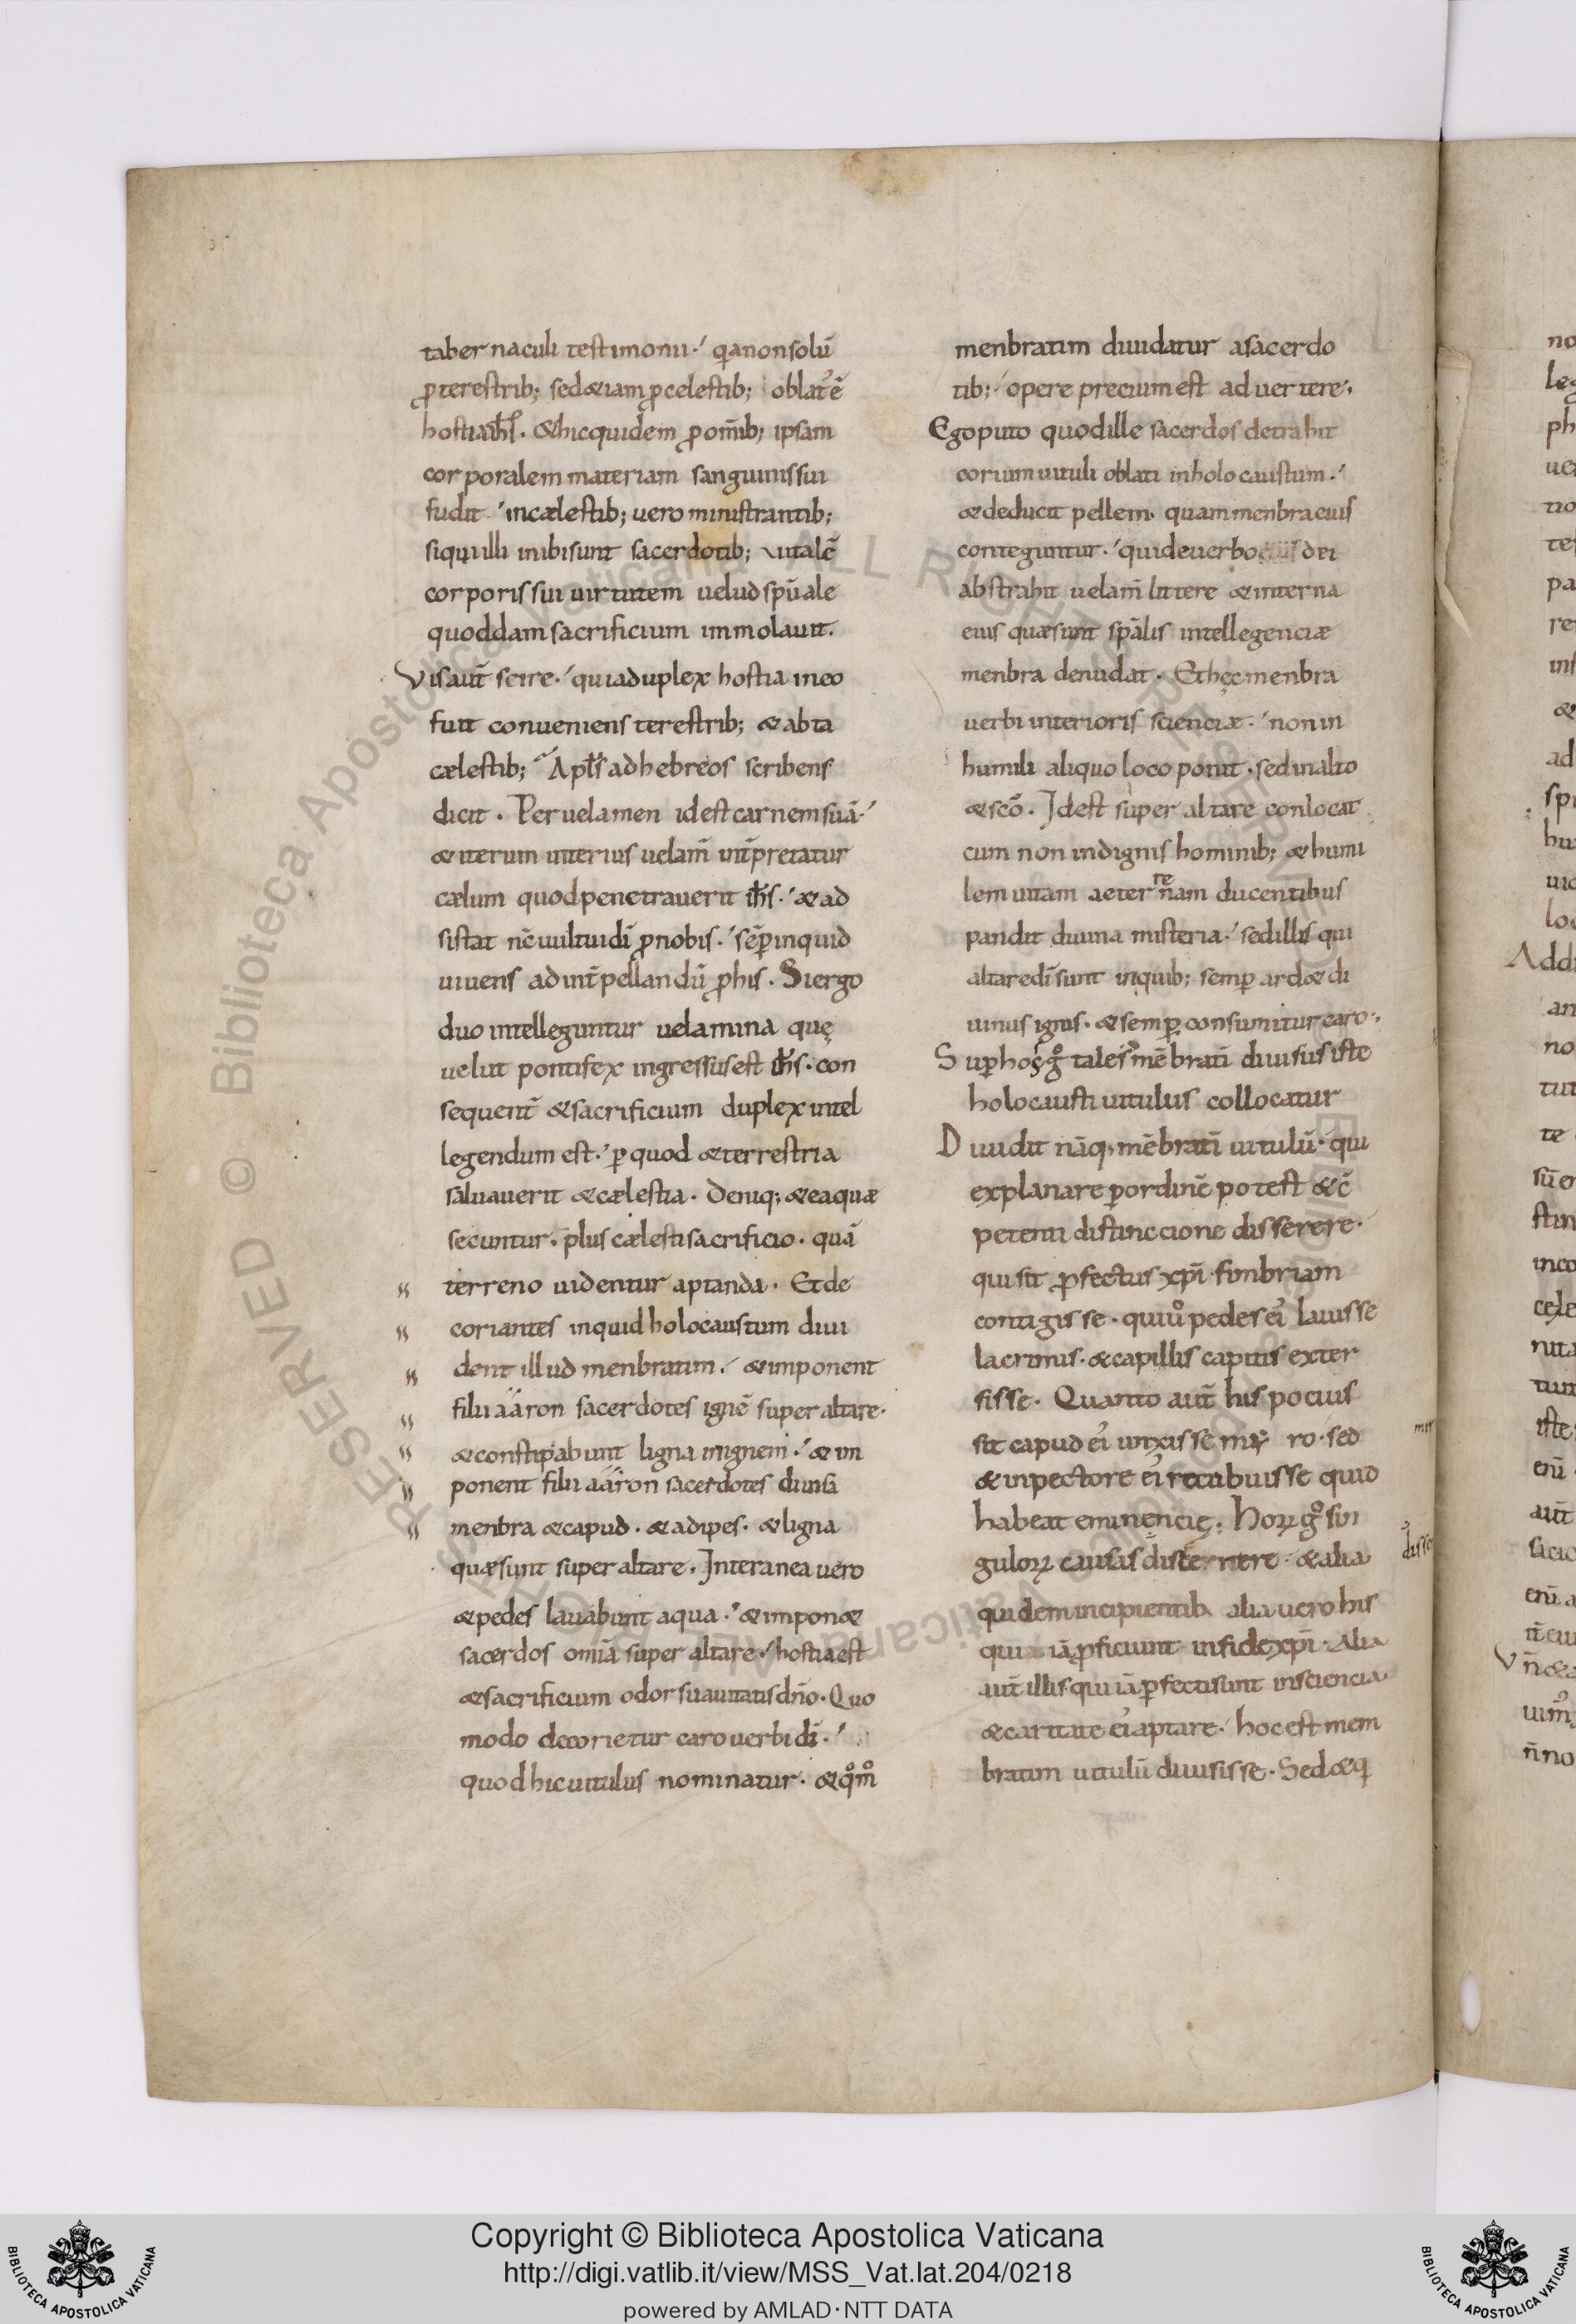 taber naculi testimonii· qa non solū
ꝓ terestrib; sed & iam ꝓ celestib; oblat' ē
hostia ih̄s. & hic quidem ꝓ om̄ib; ipsam
corporalem materiam sanguinis sui
fudit in cælestib; uero ministrantib;
si qui illi inibi sunt sacerdotib; uitalē
corporis sui uirtutem uelud spūale
quoddam sacrificium immolauit.
Vis aut̄ scire· quia duplex hostia in eo
fuit conueniens terestrib; & abta
cælestib; Apl̄s ad hebreos scribens
dicit · Per uelamen id est carnem suā·
& iterum interius uelam̄ int̄pretatur
cælum quod penetrauerit ih̄s· & ad
sistat nc̄ uultui dī ꝓ nobis· sēꝑ inquid
uiuens ad int̄pellandū ꝓ his. Si ergo
duo intelleguntur uelamina quę
uelut pontifex ingressus est ih̄s· con
sequent̄ & sacrificium duplex intel
legendum est· ꝑ quod & terrestria
saluauerit & cælestia. Deniq; & ea quæ
secuntur· plus cælesti sacrificio· quā
terreno uidentur aptanda. Et de
coriantes inquid holocaustum diui
dent illud menbratim· & imponent
filii aaron sacerdotes ignē super altare·
& constipabunt ligna in ignem· & im
ponent filii aaron sacerdotes diuisa
menbra & capud· & adipes· & ligna
quæ sunt super altare. Interanea uero
& pedes lauabunt aqua· & impon&
sacerdos omīa super altare· hostia est
& sacrificium odor suauitatis dn̄o. Quo
modo decorietur caro uerbi dī·
quod hic uitulus nominatur· & qm̊
menbratim diuidatur a sacerdo
tib; opere precium est aduertere·
Ego puto quod ille sacerdos detrahit
corium uituli oblati in holocaustum·
& deducit pellem· quam menbra eius
conteguntur· qui de uerbo dei
abstrahit uelam̄ littere & interna
eius quæ sunt spālis intellegenciæ
menbra denudat· Et hec menbra
uerbi interioris scienciæ· non in
humili aliquo loco ponit· sed in alto
& scō. Id est super altare conlocat
cum non indignis hominib; & humi
lem uitam aeter re nam ducentibus
pandit diuina misteria· sed illis qui
altare dī sunt in quib; semꝑ ard& di
uinus ignis· & semꝑ consumitur caro·
Suꝑ hos g̊ tales mēbratī diuisus iste
holocausti uitulus collocatur
Diuidit nāq; mēbratī uitulū· qui
explanare ꝑ ordinē potest & cō
petenti distinccione disserere·
qui sit ꝓfectus xp̄i fimbriam
contigisse· qui ů pedes ei' lauisse
lacrimis· & capillis capitis exter
sisse. Quanto aut̄ his pocius
sit capud ei' unxisse mir ro· sed
& in pectore ei' recubuisse quid
habeat eminencię. Hoꝝ g̊ sin
guloꝝ causas discernere & alia
quidem incipientib alia uero his
qui iā ꝓficiunt in fide xp̄i· Alia
aut̄ illis qui iā ꝑfecti sunt in sciencia
& caritate ei' aptare· hoc est mem
bratim uitulū diuisisse. Sed & q
disse
Copyright © Biblioteca Apostolica Vaticana
http://digi.vatlib.it/view/MSS_Vat.lat.204/0218
powered by AMLAD·NTT DATA
BIBLIOTECA APOSTOLICA VATICANA
BIBLIOTECA APOSTOLICA VATICANA